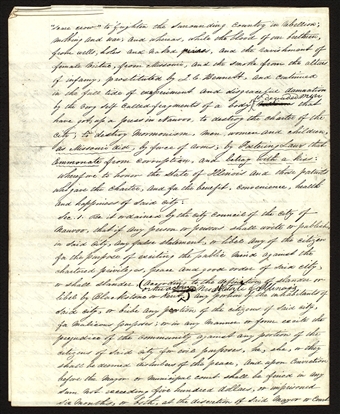 "some crow" to frighten the surrounding country in rebellion,
mobbing and war; and whereas, while the blood of our brethren,
from wells, holes and naked prairies, and the ravishment of
female virtue, from Missouri, and the smoke from the altars
of infamy, prostituted by J. C. Bennett, and continued
in the full tide of experiment and disgraceful damnation
by the any self called fragments of a body of degraded
that
have got up a press in Nauvoo, to destroy the charter of the
city, to destroy Mormonism, men, women and children,
as Missouri did; by force of arms; by fostering laws that
emanate from corruption, and betray with a kiss;
wherefore to honor the State of Illinois and those patriots
who gave the charter, and for the benefit, convenience, health
and happiness of said city:
Sec. 1. Be it ordained by the city Council of the city of
Nauvoo, that if any person or persons shall write or publish
in said city, any false statement, or libel any of the citizens
for the purpose of exciting the public mind against the
chartered privileges, peace and good order of said city,
or shall slander
(according to the definition of slander or
libel by Blackstone or Kent,) any portion of the inhabitants of
said city, or bribe any portion of the citizens of said city,
for malicious purposes; or in any manner or form excite the
prejudice of the community against any portion of the
citizens of said city for evil purposes, he, she, or they
shall be deemed disturbers of the peace; and upon conviction
before the Mayor or Municipal court, shall be fined in any
sum not exceeding five hundred dollars, or imprisoned
six months, or both, at the discretion of said Mayor or Court.